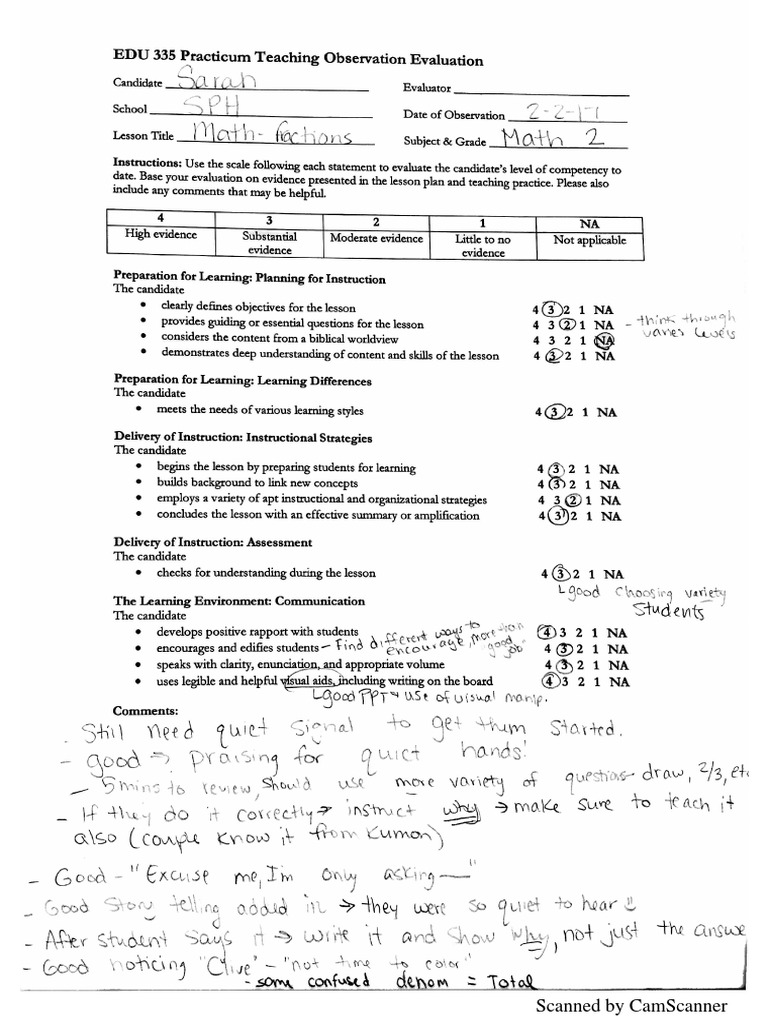 EDU 335 Practicum Teaching Observation Evaluation
Candidate Sarah Evaluator
School SPH Date of Observation 2-2-17
Lesson Title Math- fractions Subject & Grade Math 2
Instructions: Use the scale following each statement to evaluate the candidate's level of competency to
date. Base your evaluation on evidence presented in the lesson plan and teaching practice. Please also
include any comments that may be helpful.
4 3 2 1 NA
High evidence Substantial evidence Moderate evidence Little to no evidence Not applicable
Preparation for Learning: Planning for Instruction
The candidate
• clearly defines objectives for the lesson 4 3 2 1 NA
• provides guiding or essential questions for the lesson 4 3 2 1 NA - think through
varies levels
• considers the content from a biblical worldview 4 3 2 1 NA
• demonstrates deep understanding of content and skills of the lesson 4 3 2 1 NA
Preparation for Learning: Learning Differences
The candidate
• meets the needs of various learning styles 4 3 2 1 NA
Delivery of Instruction: Instructional Strategies
The candidate
• begins the lesson by preparing students for learning 4 3 2 1 NA
• builds background to link new concepts 4 3 2 1 NA
• employs a variety of apt instructional and organizational strategies 4 3 2 1 NA
• concludes the lesson with an effective summary or amplification 4 3 2 1 NA
Delivery of Instruction: Assessment
The candidate
• checks for understanding during the lesson 4 3 2 1 NA
good choosing variety
students
The Learning Environment: Communication
The candidate
• develops positive rapport with students 4 3 2 1 NA
• encourages and edifies students - Find different ways to encourage, more than "good job" 4 3 2 1 NA
• speaks with clarity, enunciation, and appropriate volume 4 3 2 1 NA
• uses legible and helpful visual aids, including writing on the board 4 3 2 1 NA
good PPT & use of visual manip.
Comments:
. Still need quiet signal to get them started.
- good → praising for quiet hands!
- 5 mins to review, should use more variety of questions- draw, 2/3, etc
- If they do it correctly → instruct why → make sure to teach it
also (couple know it from Kumon)
- Good - "Excuse me, I'm only asking—"
- Good Story telling added in → they were so quiet to hear ☺
- After student says it → write it and show why, not just the answe
- Good noticing "Clive" - "not time to color"
- some confused denom = Total
Scanned by CamScanner